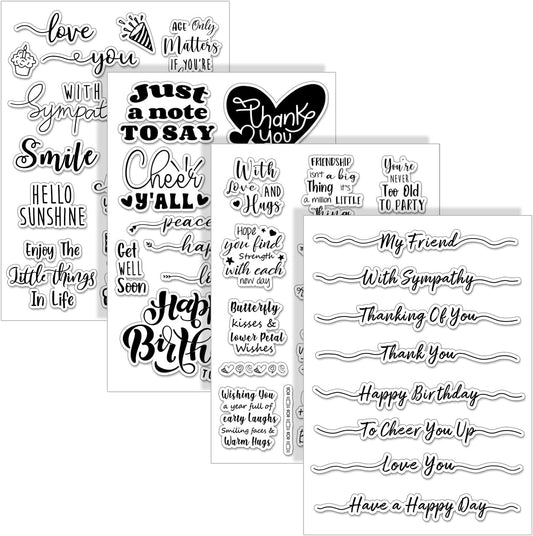 love
you
AGE Only
Matters
IF YOU'RE
WITH
Smile
HELLO
SUNSHINE
Enjoy The
Little things
In Life
Just
a note
TO SAY
Thank
You
Cheer
Y'ALL
peace
Get
WELL
Soon
With
Love AND
Hugs
FRIENDSHIP
isn't a big
Thing it's
a million LITTLE
You're
NEVER
Too Old
TO PARTY
Hope
you find
Strength
with each
new day
Butterfly
kisses &
lower Petal
Wishes
Wishing You
a year full of
early Laughs
Smiling faces &
Warm Hugs
My Friend
With Sympathy
Thanking Of You
Thank You
Happy Birthday
To Cheer You Up
Love You
Have a Happy Day